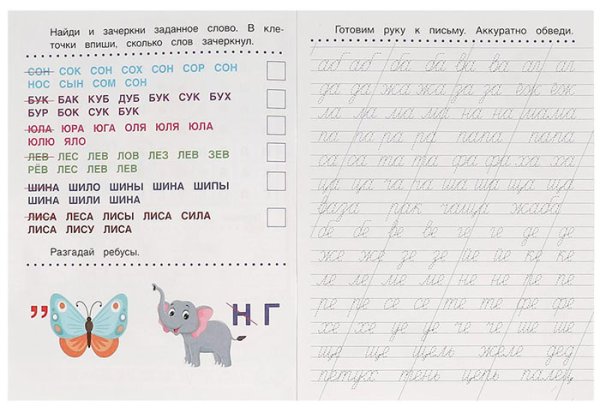 Найди и зачеркни заданное слово. В кле-
точки впиши, сколько слов зачеркнул.
СОН СОК СОН СОХ СОН СОР СОН
НОС СЫН СОМ СОН
БУК БАК КУБ ДУБ БУК СУК БУХ
БУР БОК СУК БУК
ЮЛА ЮРА ЮГА ОЛЯ ЮЛЯ ЮЛА
ЮЛЮ ЯЛО
ЛЕВ ЛЕС ЛЕВ ЛОВ ЛЕЗ ЛЕВ ЗЕВ
РЁВ ЛЕС ЛЕВ ЛЕВ
ШИНА ШИЛО ШИНЫ ШИНА ШИПЫ
ШИНА ШИЛИ ШИНА
ЛИСА ЛЕСА ЛИСЫ ЛИСА СИЛА
ЛИСА ЛИСУ ЛИСА
Разгадай ребусы.
,, Н Г
Готовим руку к письму. Аккуратно обведи.
аб аб ба ба ва ва ал ал
да да жа жа за за еж еж
ла ла ма ма на на мама
па па ра ра папа папа
са са та та фа фа ха ха
ца ца ча ча ша ша ща ща
ваза рак чаща жаба
бе бе ве ве ге ге де де
же же зе зе ке ке
ле ле ме ме не не пе пе
ре ре се се те те фе фе
хе хе це це че че ше ше
ще ще щель желе дед
петух тень цепь палец